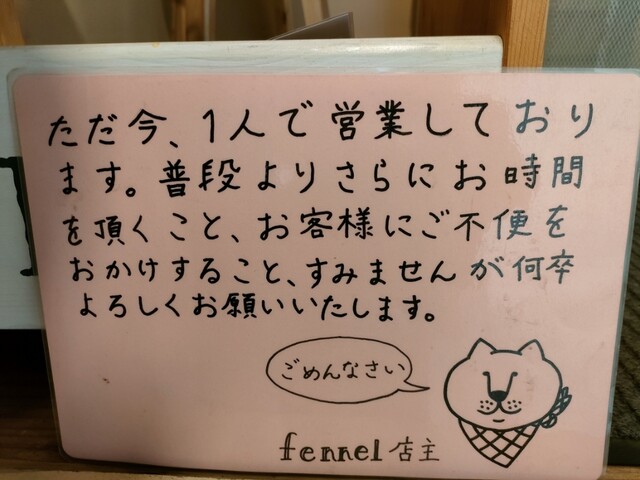 ただ今、1人で営業しており
ます。普段よりさらにお時間
を頂くこと、お客様にご不便を
おかけすること、すみませんが何卒
よろしくお願いいたします。
ごめんなさい
fennel店主